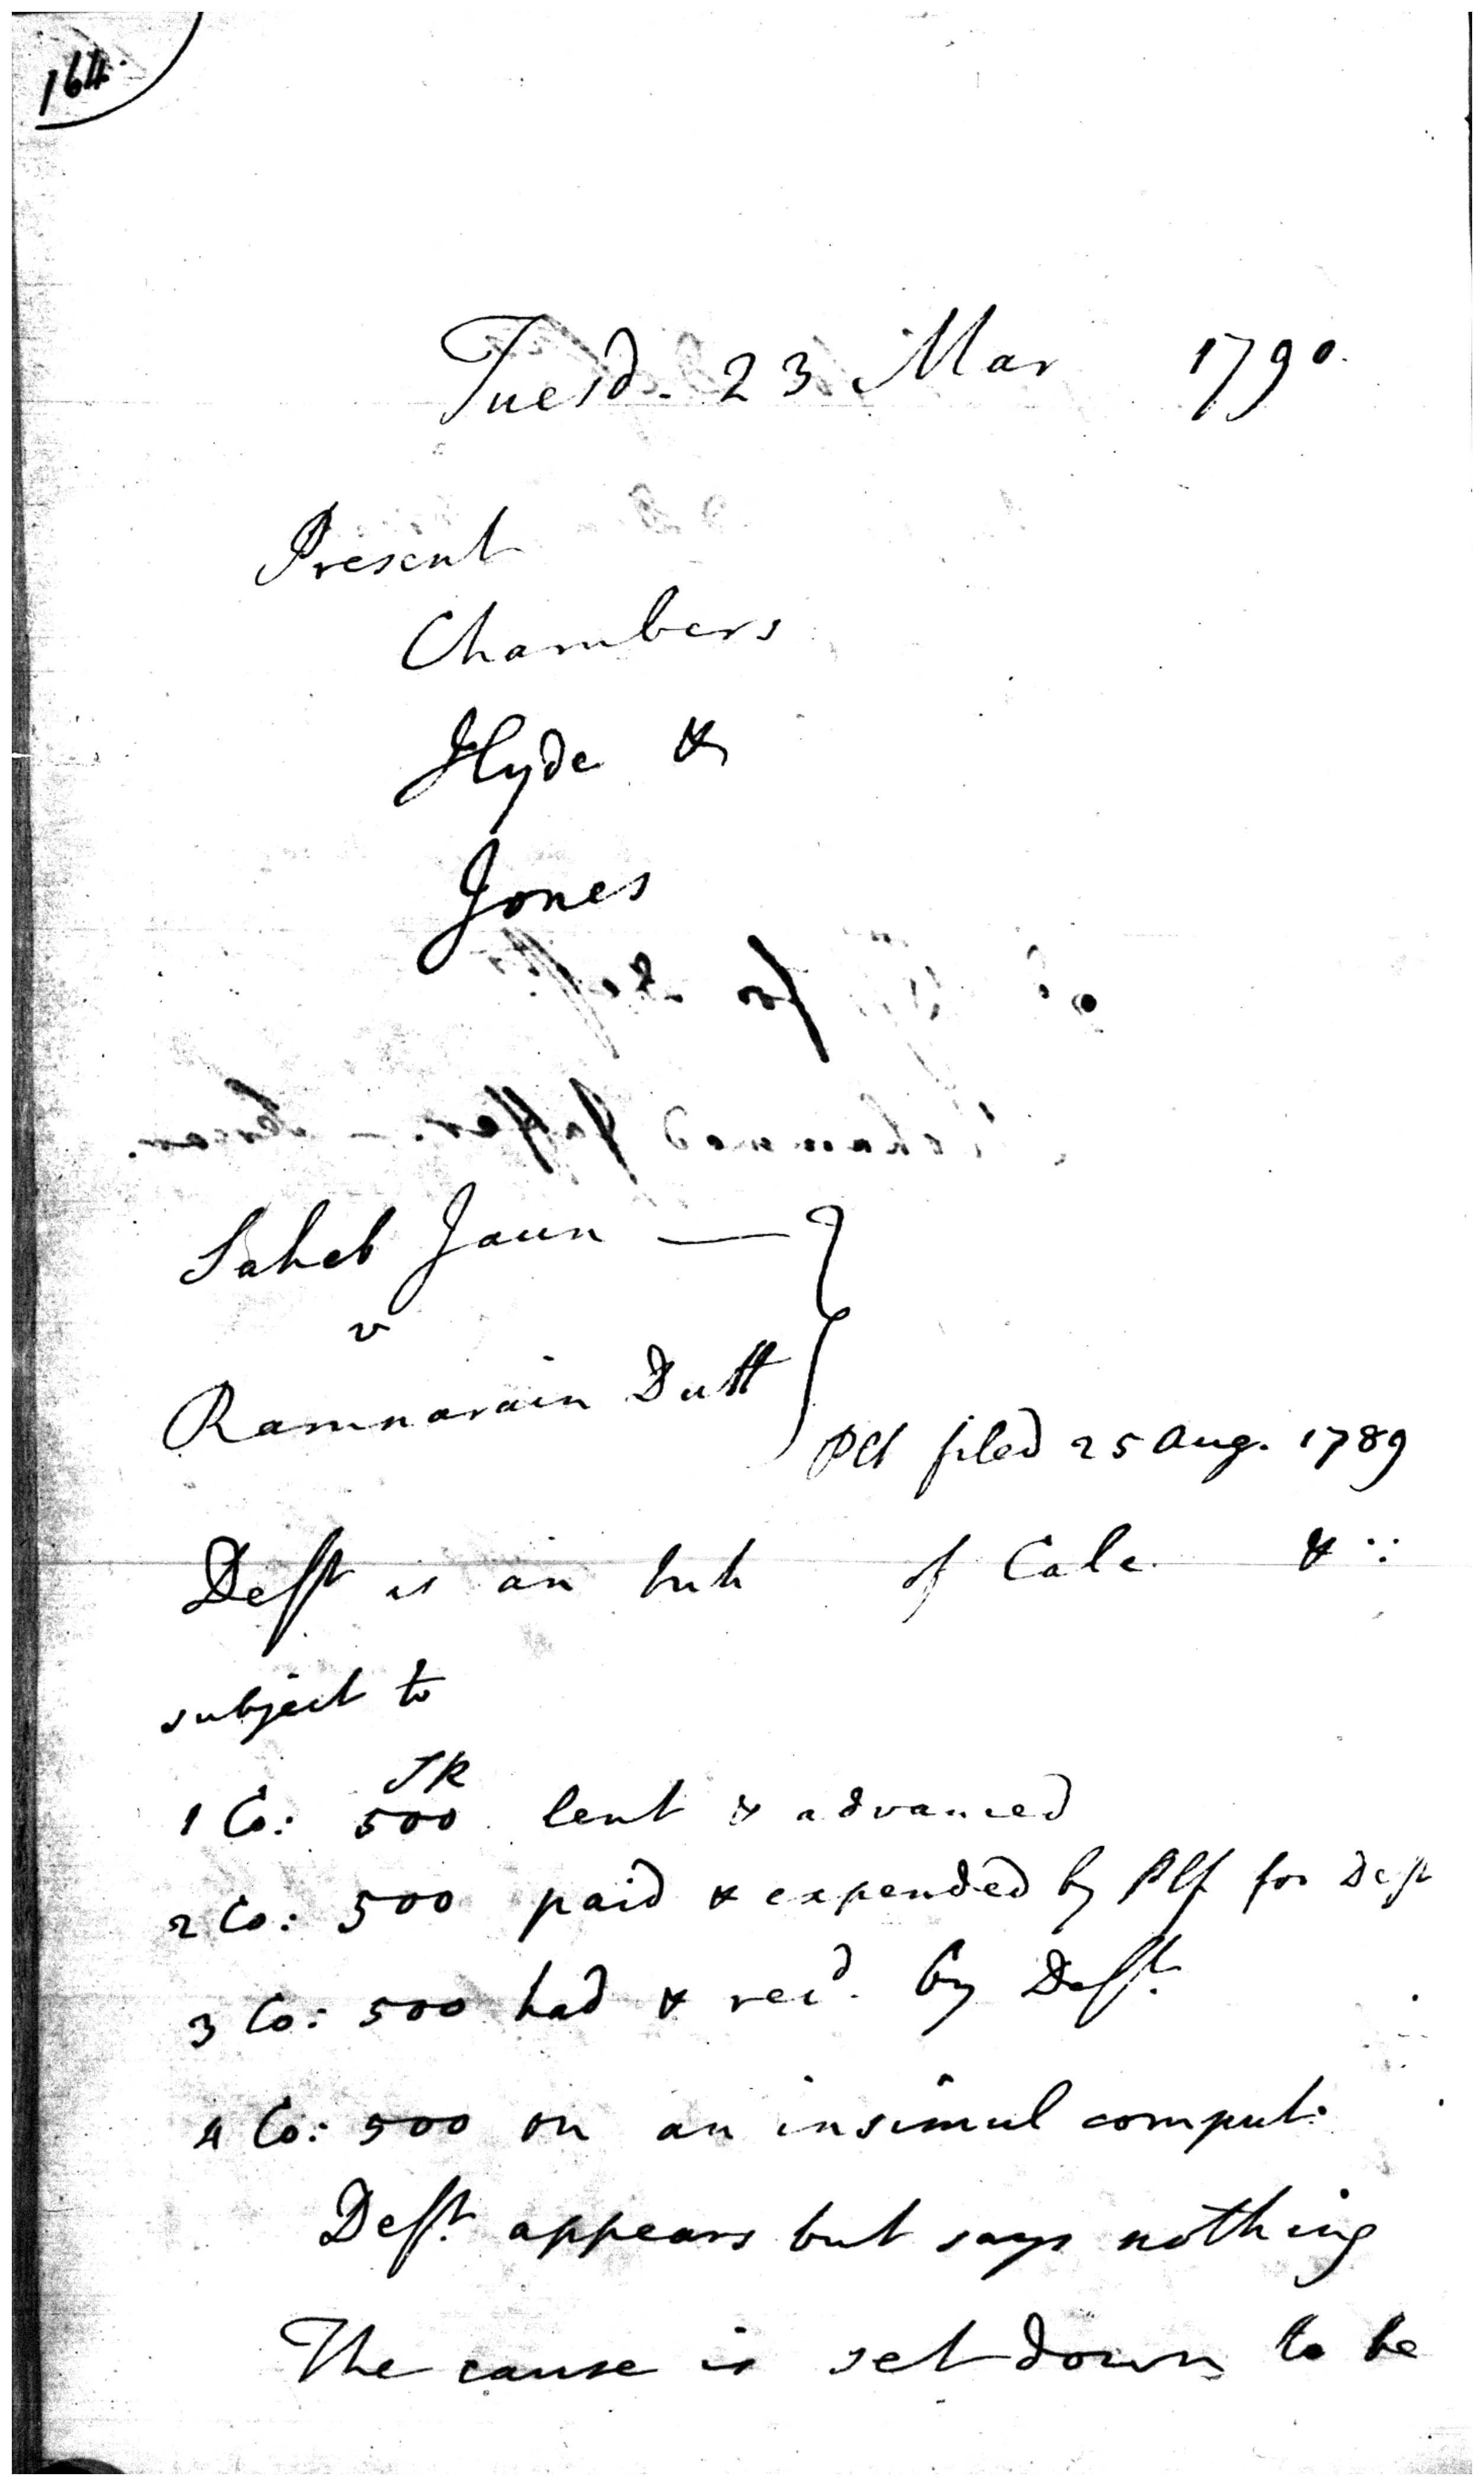 164.
Tuesd. 23 Mar 1790.
Present
Chambers
Hyde &
Jones
Saheb Jaun —
v
Ramnarain Dutt
Plt filed 25 Aug. 1789
Deft is an Inh of Calc. & ∵
subject to
SR
1 Co: 500 lent & advanced
2 Co: 500 paid & expended by Plf for Deft
3 Co: 500 had & recd. by Deft.
4 Co: 500 on an insimul comput.
Deft. appears but says nothing
The cause is set down to be